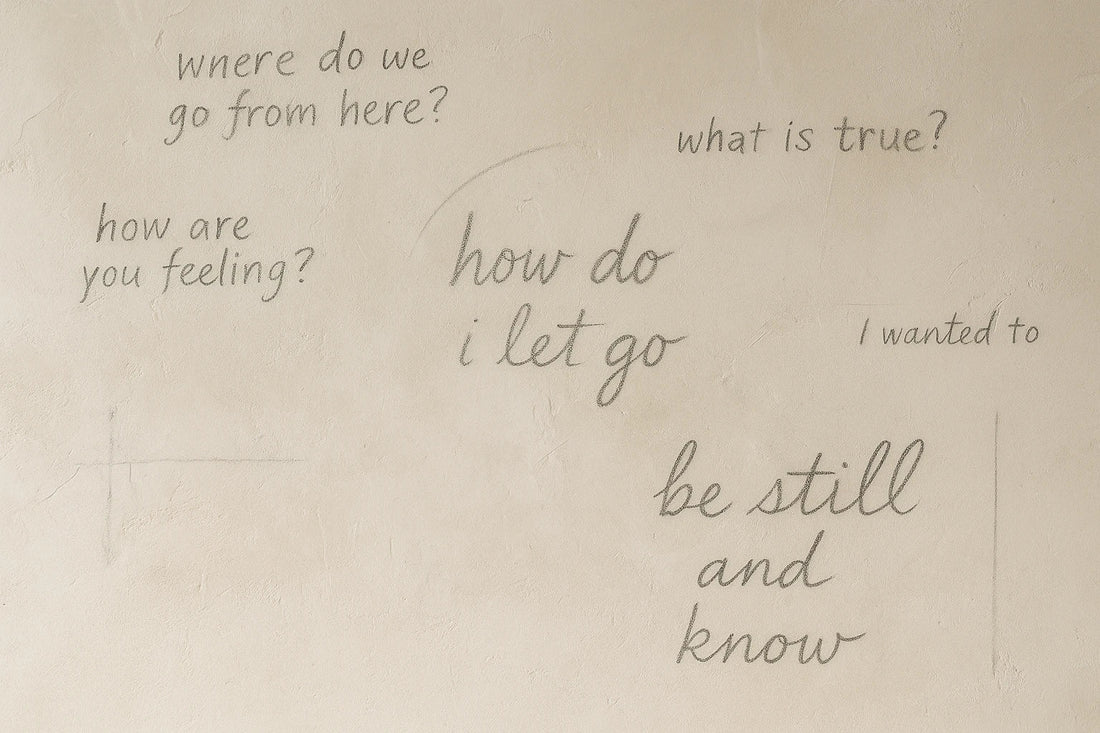 wnere do we
go from here?
what is true?
how are
you feeling?
how do
i let go
I wanted to
be still
and
know